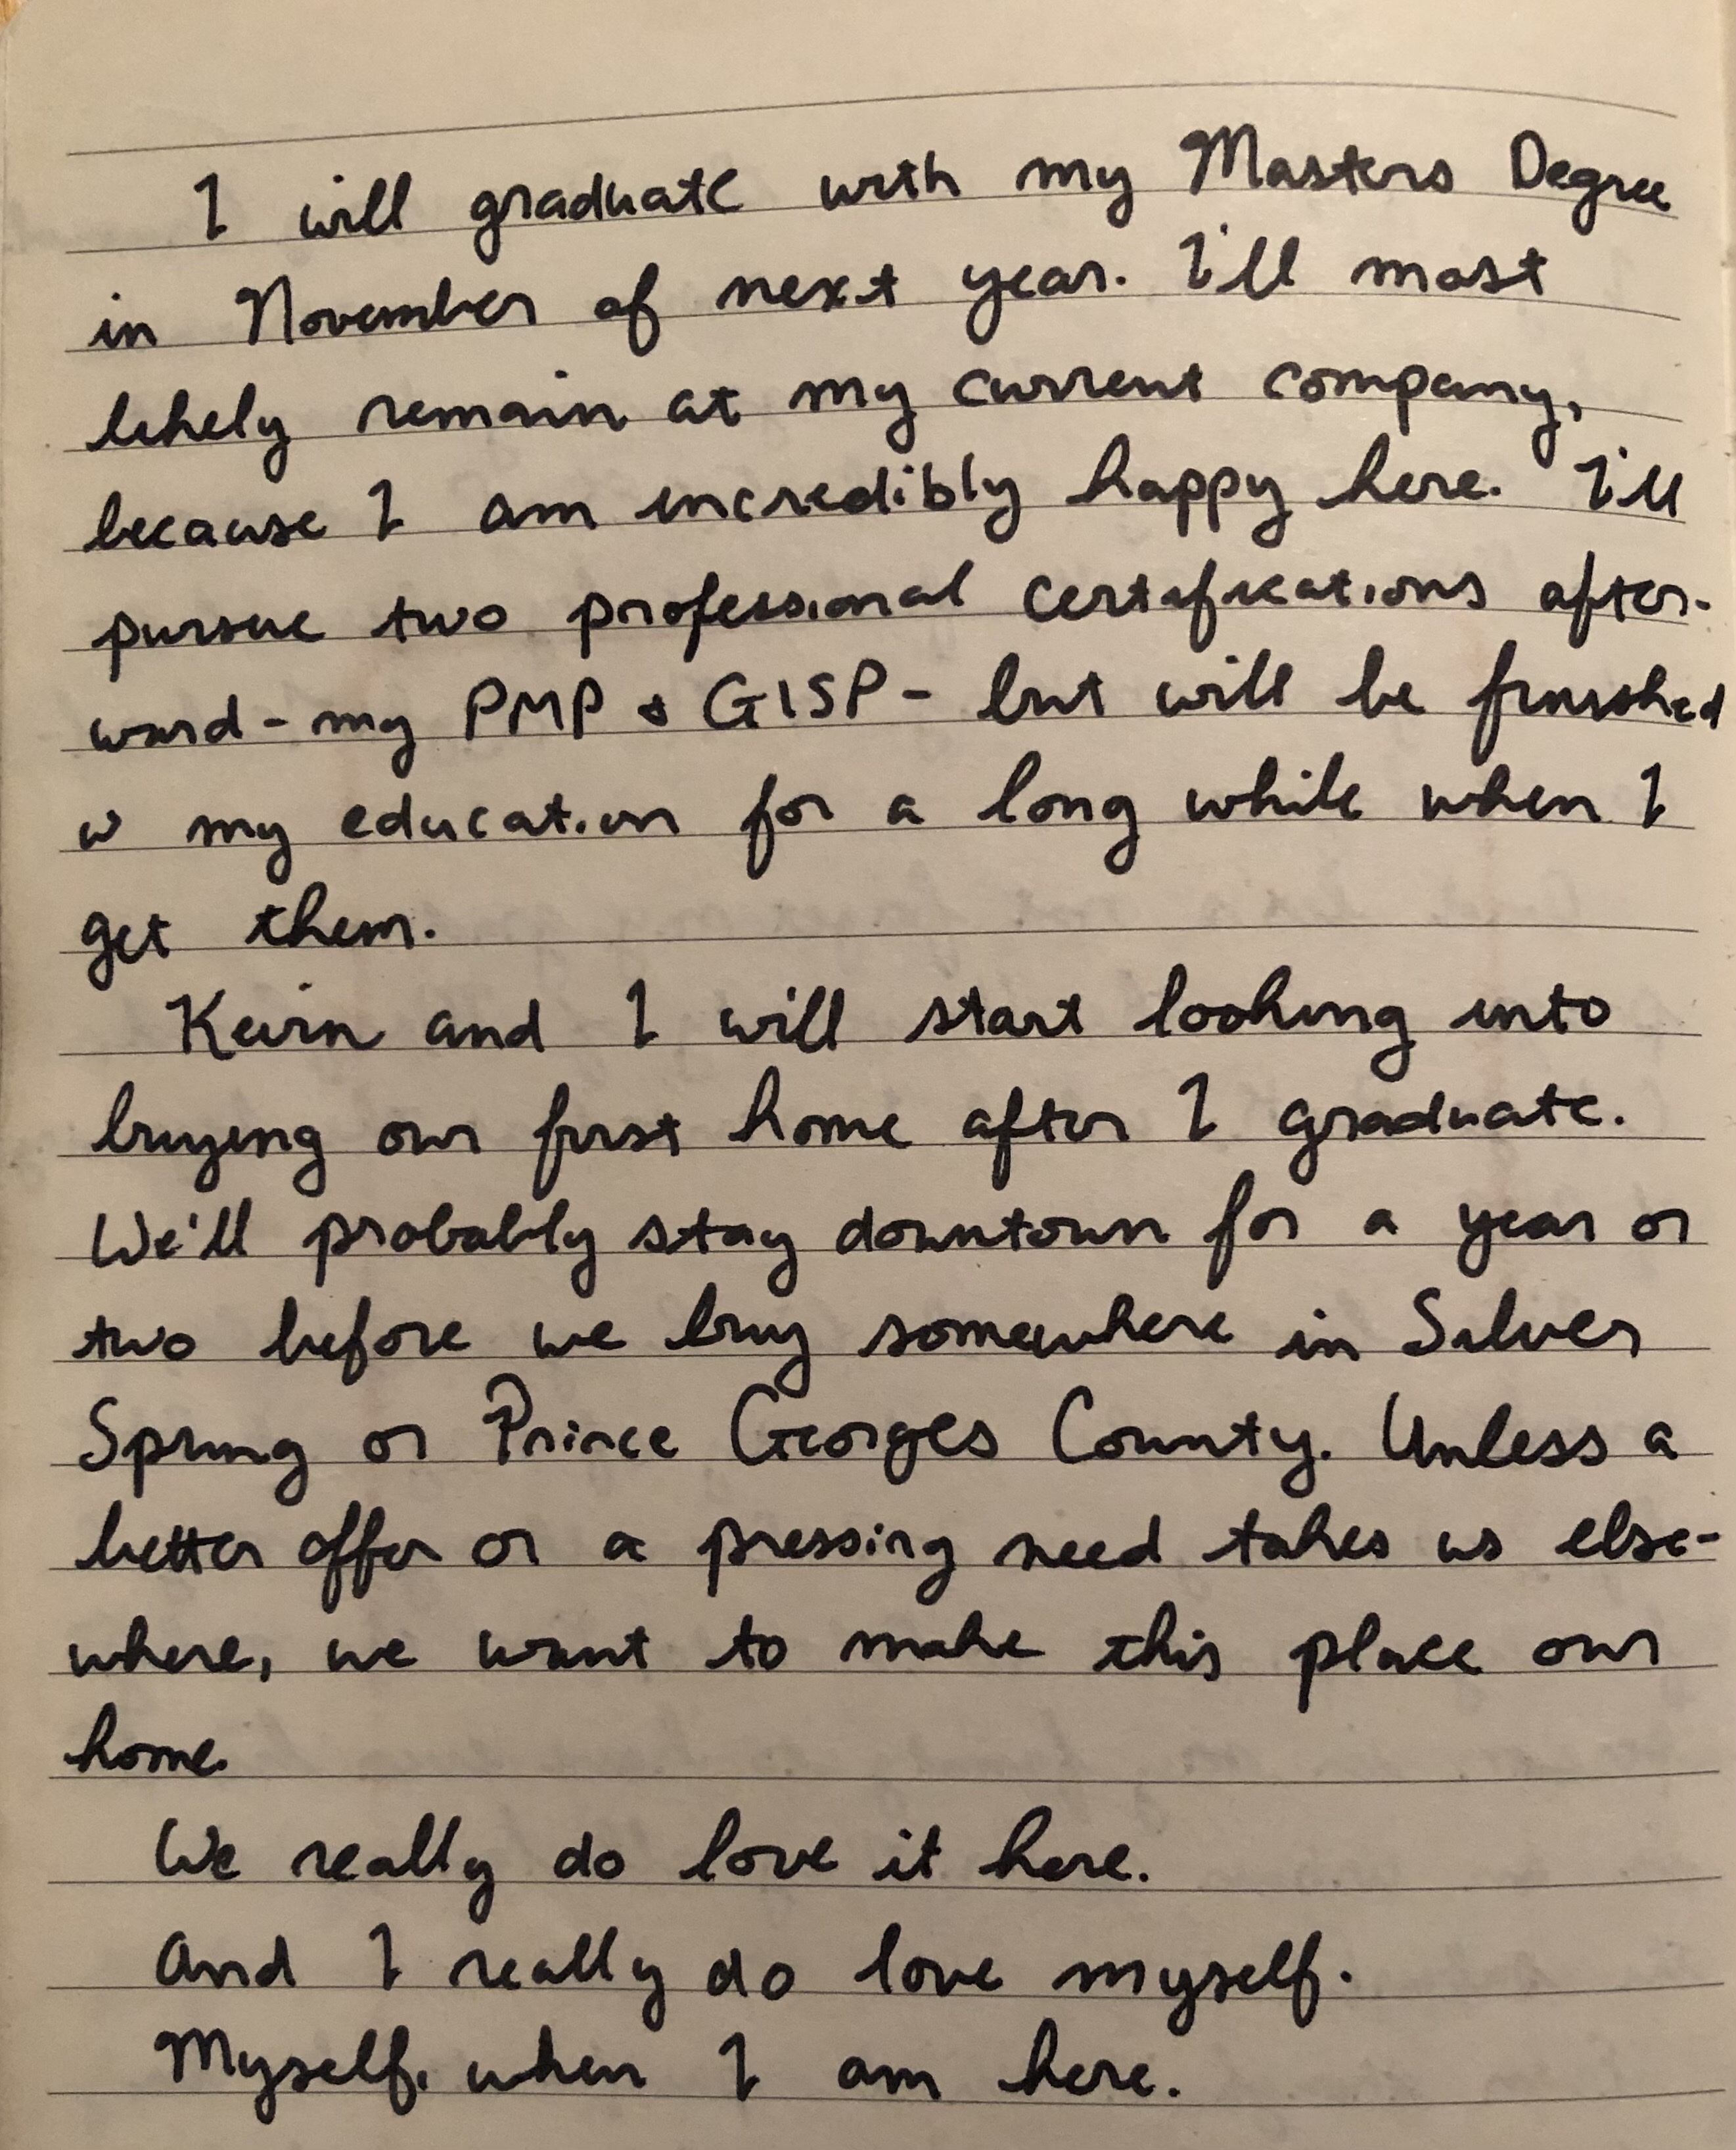 I will graduate with my Masters Degree
in November of next year. I'll most
likely remain at my current company,
because I am incredibly happy here. I'll
pursue two professional certifications after-
ward - my PMP & GISP - but will be finished
w my education for a long while when I
get them.
Kevin and I will start looking into
buying our first home after I graduate.
We'll probably stay downtown for a year or
two before we buy somewhere in Silver
Spring or Prince Georges County. Unless a
better offer or a pressing need takes us else-
where, we want to make this place our
home.
We really do love it here.
And I really do love myself.
Myself, when I am here.